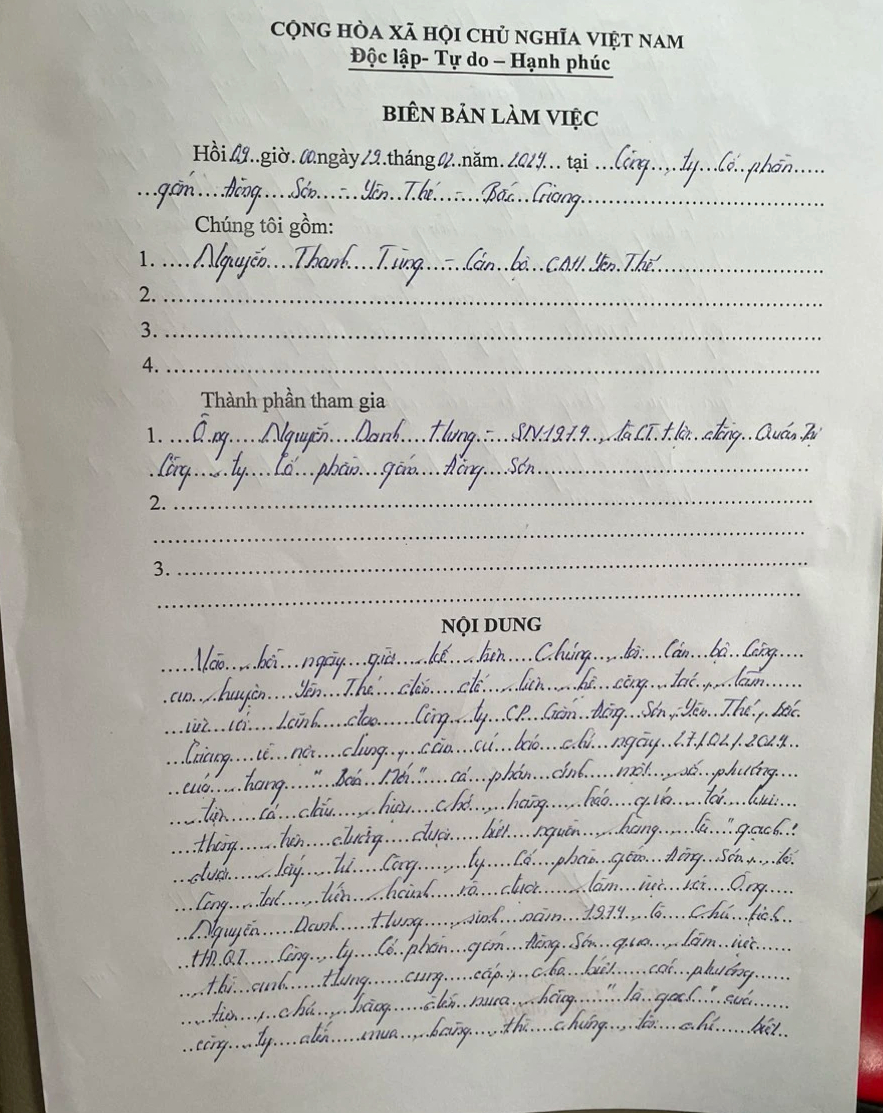 CỘNG HÒA XÃ HỘI CHỦ NGHĨA VIỆT NAM
Độc lập- Tự do – Hạnh phúc
BIÊN BẢN LÀM VIỆC
Hồi 09 giờ 00 ngày 29 tháng 02 năm 2024 tại Công ty Cổ phần
gốm Đông Sơn - Yên Thế - Bắc Giang
Chúng tôi gồm:
1. Nguyễn Thanh Tùng - Cán bộ CAH. Yên Thế
2.
3.
4.
Thành phần tham gia
1. Ông Nguyễn Danh Hưng - SN.1979, là CT. Hội đồng Quản Trị
Công ty Cổ phần gốm Đông Sơn
2.
3.
NỘI DUNG
Vào hồi ngày giờ kể trên Chúng tôi Cán bộ Công
an huyện Yên Thế đến để liên hệ công tác, làm
việc với Lãnh đạo Công ty CP Gốm Đông Sơn, Yên Thế, Bắc
Giang về nội dung, căn cứ báo chí ngày 27/02/2024
của trang "Báo Mới" có phản ánh một số phương
tiện có dấu hiệu chở hàng hóa quá tải lưu
thông trên đường được biết nguồn hàng là "gạch"
được lấy từ Công ty Cổ phần gốm Đông Sơn, tổ
Công tác tiến hành và được làm việc với Ông
Nguyễn Danh Hưng, sinh năm 1979, là Chủ tịch
HĐQT Công ty Cổ phần gốm Đông Sơn qua làm việc
thì anh Hưng cung cấp, cho biết các phương
tiện chở hàng đến mua hàng "là gạch" của
công ty đến mua hàng thì chúng tôi chỉ biết